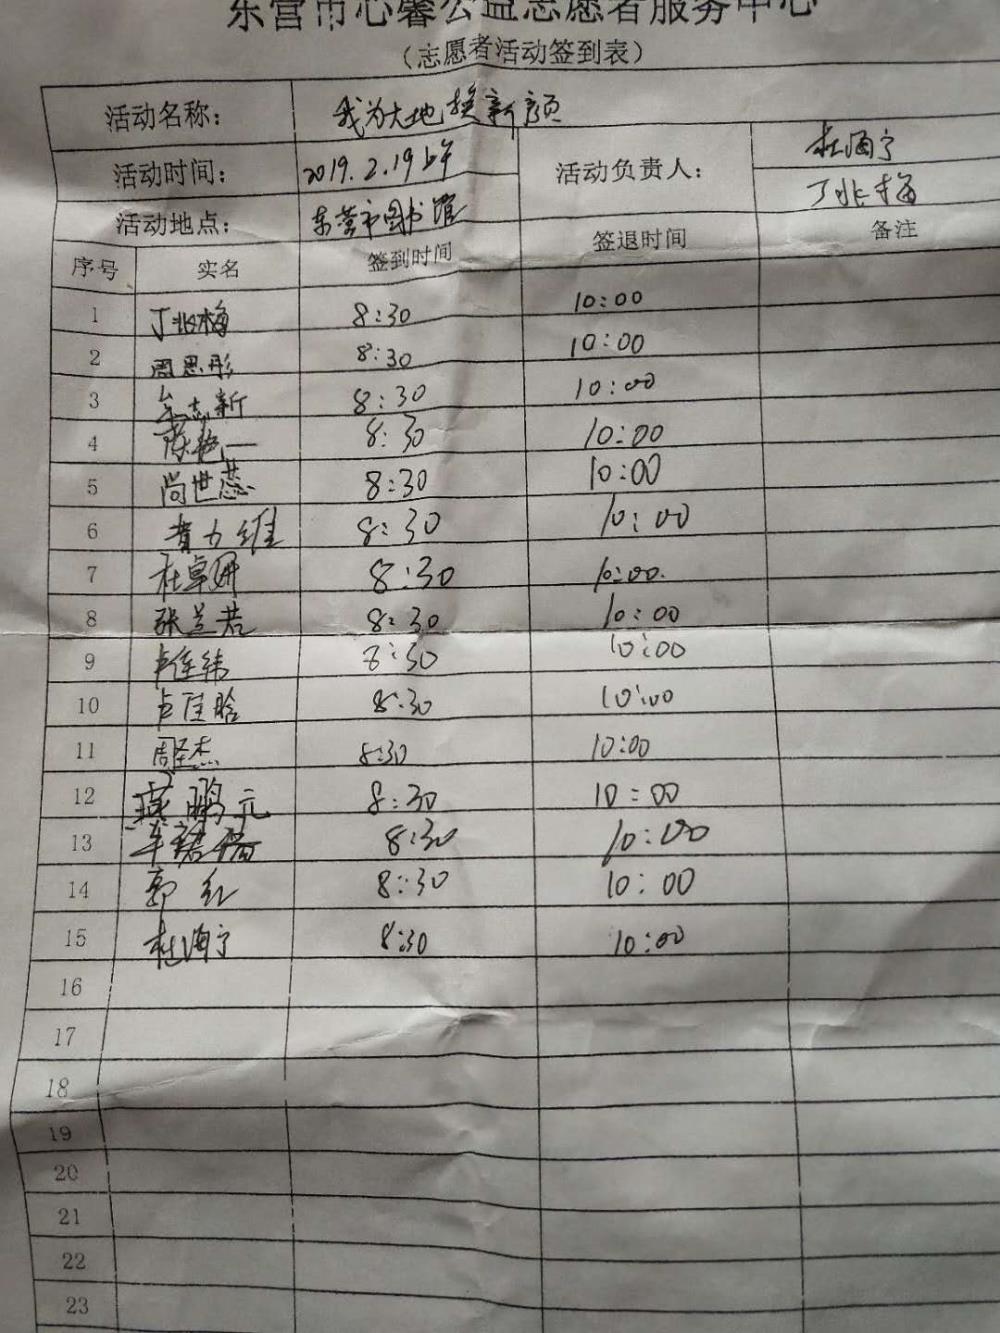 东营市心馨公益志愿者服务中心
（志愿者活动签到表）
活动名称： 我为大地换新颜
活动时间： 2019.2.19上午 活动负责人： 杜海宁
丁兆梅
活动地点： 东营市图书馆
序号 实名 签到时间 签退时间 备注
1 丁兆梅 8:30 10:00
2 周思彤 8:30 10:00
3 志新 8:30 10:00
4 8:30 10:00
5 尚世蕊 8:30 10:00
6 力维 8:30 10:00
7 杜卓妍 8:30 10:00.
8 张芸若 8:30 10:00
9 卢连纬 8:30 10:00
10 卢佳晗 8:30 10:00
11 周圣杰 8:30 10:00
12 燕鹏元 8:30 10:00
13 车 8:30 10:00
14 郭红 8:30 10:00
15 杜海宁 8:30 10:00
16
17
18
19
20
21
22
23